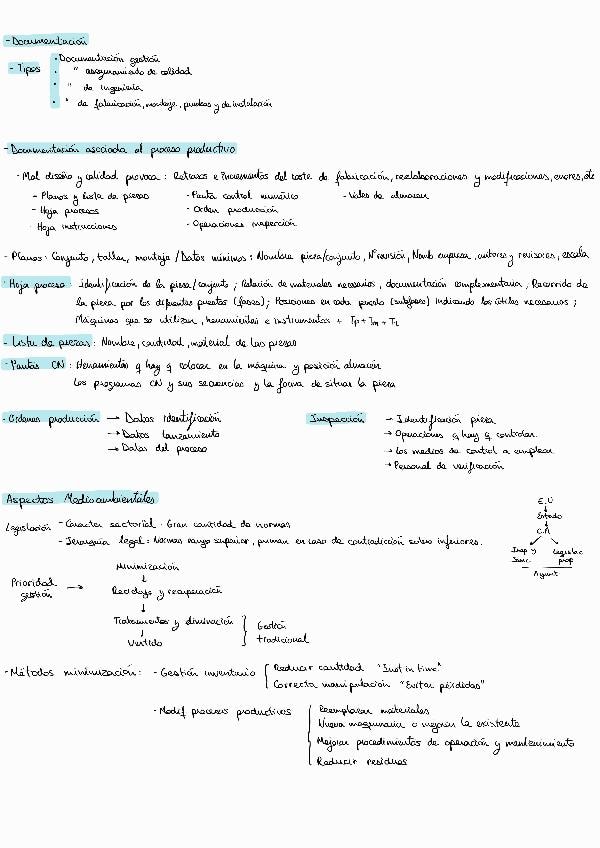 - Documentación
- Tipos
· Documentación gestión
· " aseguramiento de calidad
· " de ingeniería
· " de fabricación, montaje, pruebas y de instalación
- Documentación asociada al proceso productivo
- Mal diseño y calidad provoca: Retrasos e Incrementos del coste de fabricación, reelaboraciones y modificaciones, errores, etc
- Planos y lista de piezas - Pauta control numérico - Vales de almacen
- Hoja procesos - Orden producción
· Hoja instrucciones - Operaciones inspección
- Planos: Conjunto, taller, montaje / Datos mínimos: Nombre pieza/conjunto, Nº revisión, Nomb empresa, autores y revisores, escala
· Hoja proceso: Identificación de la pieza/conjunto; Relación de materiales necesarios, documentación complementaria, Recorrido de
la pieza por los diferentes puestos (fases); Posiciones en cada puesto (subfases) Indicando los útiles necesarios;
Máquinas que se utilizan, herramientas e instrumentos + Tp + Tm + TL
- Lista de piezas: Nombre, cantidad, material de las piezas
- Pautas CN: Herramientas q hay q colocar en la máquina y posición almacén
Los programas CN y sus secuencias y la forma de situar la pieza
- Ordenes producción → Datos Identificación
→ Datos lanzamiento
→ Datos del proceso
Inspección → Identificación pieza
→ Operaciones q hay q controlar
→ Los medios de control a emplear
→ Personal de verificación
Aspectos Medioambientales
Legislación - Caracter sectorial · Gran cantidad de normas
- Jerarquía legal: Normas rango superior, priman en caso de contradicción sobre inferiores.
E.U
↓
Estado
↓
C.A
Insp y Legislac
Sanc prop
Ayunt
Prioridad gestión →
Minimización
↓
Reciclaje y recuperación
↓
Tratamientos y eliminación
↓
Vertido
Gestión
tradicional
- Métodos minimización: - Gestión inventario
Reducir cantidad "Just in time"
Correcta manipulación "Evitar pérdidas"
- Modif procesos productivos
Reemplazar materiales
Nueva maquinaria o mejorar la existente
Mejorar procedimientos de operación y mantenimiento
Reducir residuos